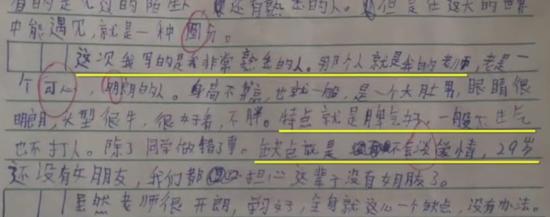 有的是见过的陌生人，还有熟悉的人。但是在这大的世界
中能遇见，就是一种圆分。
这次我写的是我非常熟悉的人。那个人就是我的老师，老是一
个可心，明朗的人。身高不高，也就一般，是一个大肚男，眼睛很
明朗，大型很牛，很好看，不胖。特点就是脾气好，一般不生气
也不打人。除了同学做错了事。缺点就是不会谈爱情，29岁
还没有女朋友，我们都担心这辈子没有女朋友了。
虽然老师很开朗，全身就这么一个缺点，没有办法。